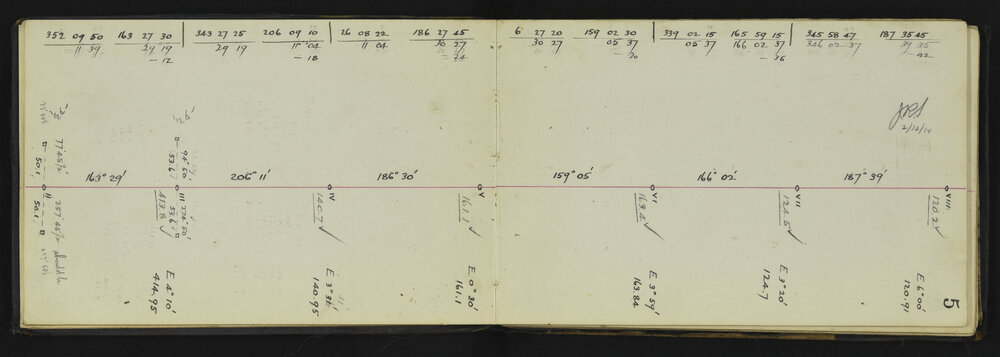 352 09 50 163 27 30 343 27 25 206 09 10 26 08 22 186 27 45 6 27 20 159 02 30 339 02 15 165 59 15 345 58 47 187 35 45
11 39 29 19 29 19 11 04 11 04 30 27 30 27 05 37 05 37 166 02 37 346 02 37 39 35
— 12 — 18 — 24 — 30 — 36 — 42
2/12/14
163° 29' 206° 11' 186° 30' 159° 05' 166° 02' 187° 39'
77°45½' 50.1
94°50' 53.6
II III IV V VI VII VIII
257°45½' 50.1
274°50' 53.6
413.8 140.7 161.1 163.4 124.5 120.2
E 4° 10' E 3° 31' E 0° 30' E 3° 59' E 3° 20' E 6° 00'
414.95 140.95 161.1 163.84 124.7 120.91
5